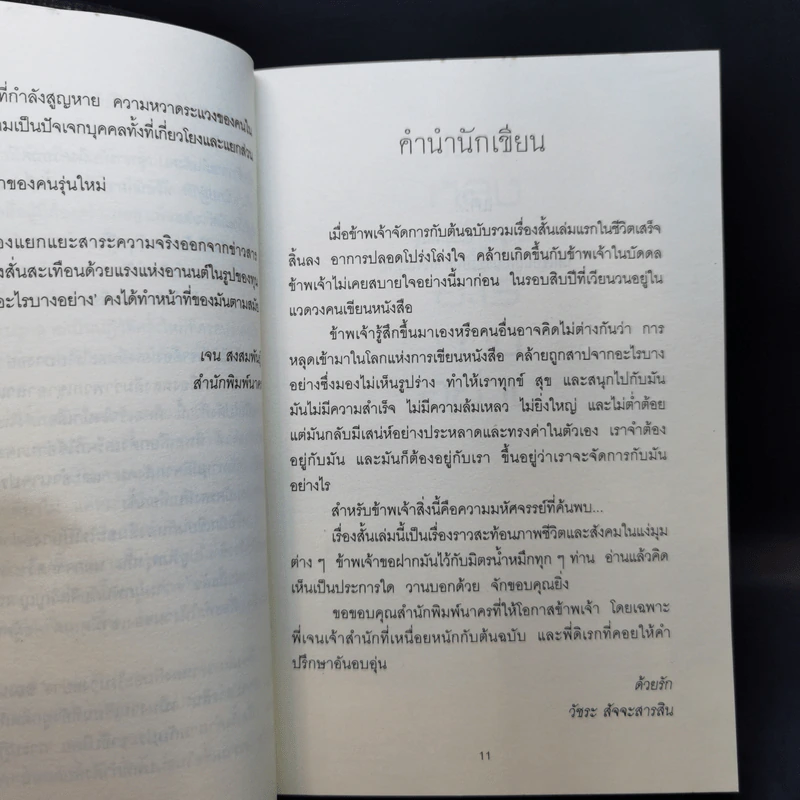 ที่กำลังสูญหาย ความหวาดระแวงของคนใน
มเป็นปัจเจกบุคคลทั้งที่เกี่ยวโยงและแยกส่วน
ของคนรุ่นใหม่
องแยกแยะสาระความจริงออกจากข่าวสาร
งสั่นสะเทือนด้วยแรงแห่งอานนต์ในรูปของทุน
อะไรบางอย่าง' คงได้ทำหน้าที่ของมันตามสมัย
เจน สงสมพันธุ์
สำนักพิมพ์นาคร
คำนำนักเขียน
เมื่อข้าพเจ้าจัดการกับต้นฉบับรวมเรื่องสั้นเล่มแรกในชีวิตเสร็จ
สิ้นลง อาการปลอดโปร่งโล่งใจ คล้ายเกิดขึ้นกับข้าพเจ้าในบัดดล
ข้าพเจ้าไม่เคยสบายใจอย่างนี้มาก่อน ในรอบสิบปีที่เวียนวนอยู่ใน
แวดวงคนเขียนหนังสือ
ข้าพเจ้ารู้สึกขึ้นมาเองหรือคนอื่นอาจคิดไม่ต่างกันว่า การ
หลุดเข้ามาในโลกแห่งการเขียนหนังสือ คล้ายถูกสาปจากอะไรบาง
อย่างซึ่งมองไม่เห็นรูปร่าง ทำให้เราทุกข์ สุข และสนุกไปกับมัน
มันไม่มีความสำเร็จ ไม่มีความล้มเหลว ไม่ยิ่งใหญ่ และไม่ต่ำต้อย
แต่มันกลับมีเสน่ห์อย่างประหลาดและทรงค่าในตัวเอง เราจำต้อง
อยู่กับมัน และมันก็ต้องอยู่กับเรา ขึ้นอยู่ว่าเราจะจัดการกับมัน
อย่างไร
สำหรับข้าพเจ้าสิ่งนี้คือความมหัศจรรย์ที่ค้นพบ...
เรื่องสั้นเล่มนี้เป็นเรื่องราวสะท้อนภาพชีวิตและสังคมในแง่มุม
ต่าง ๆ ข้าพเจ้าขอฝากมันไว้กับมิตรน้ำหมึกทุก ๆ ท่าน อ่านแล้วคิด
เห็นเป็นประการใด วานบอกด้วย จักขอบคุณยิ่ง
ขอขอบคุณสำนักพิมพ์นาครที่ให้โอกาสข้าพเจ้า โดยเฉพาะ
พี่เจนเจ้าสำนักที่เหนื่อยหนักกับต้นฉบับ และพี่ดิเรกที่คอยให้คำ
ปรึกษาอันอบอุ่น
ด้วยรัก
วัชระ สัจจะสารสิน
11